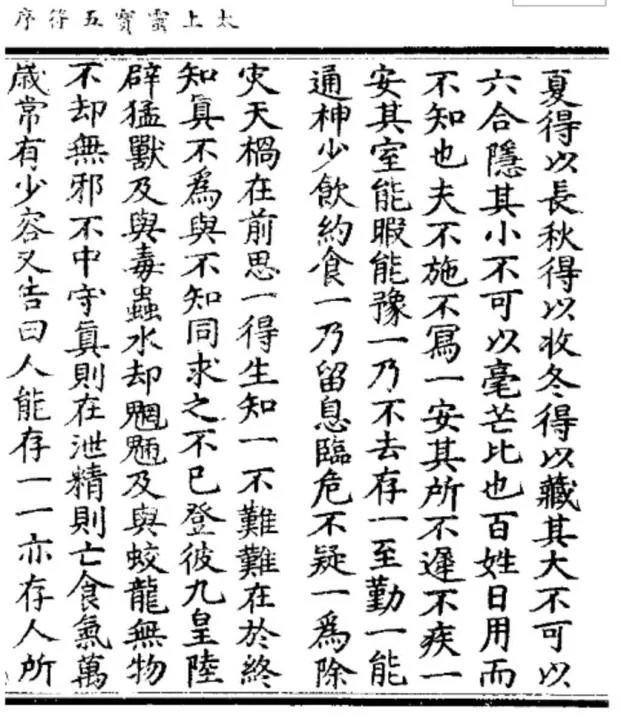 太上靈寶五符序
夏得以長秋得以收冬得以藏其大不可以
六合隱其小不可以毫芒比也百姓日用而
不知也夫不施不寫一安其所不遲不疾一
安其室能暇能豫一乃不去存一至勤一能
通神少飲約食一乃留息臨危不疑一爲除
灾天禍在前思一得生知一不難難在於終
知眞不爲與不知同求之不已登彼九皇陸
辟猛獸及與毒蟲水却魍魎及與蛟龍無物
不却無邪不中守眞則在泄精則亡食氣萬
歳常有少容又告曰人能存一一亦存人所